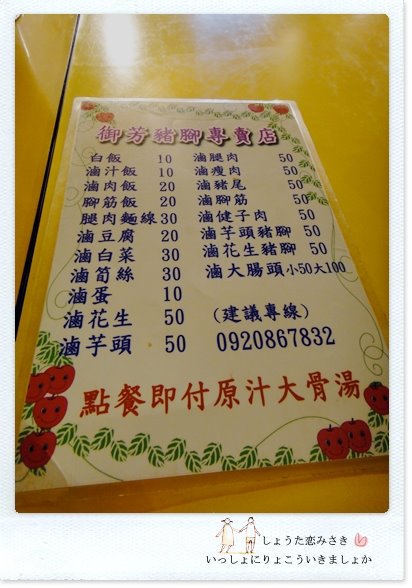 御芳豬腳專賣店
白飯 10
滷汁飯 10
滷肉飯 20
腳筋飯 20
腿肉麵線 30
滷豆腐 20
滷白菜 30
滷筍絲 30
滷蛋 10
滷花生 50
滷芋頭 50
滷腿肉 50
滷瘦肉 50
滷豬尾 50
滷腳筋 50
滷健子肉 50
滷芋頭豬腳 50
滷花生豬腳 50
滷大腸頭 小50大100
(建議專線)
0920867832
點餐即付原汁大骨湯
しょうた恋みさき
いっしょにりょこういきましょか